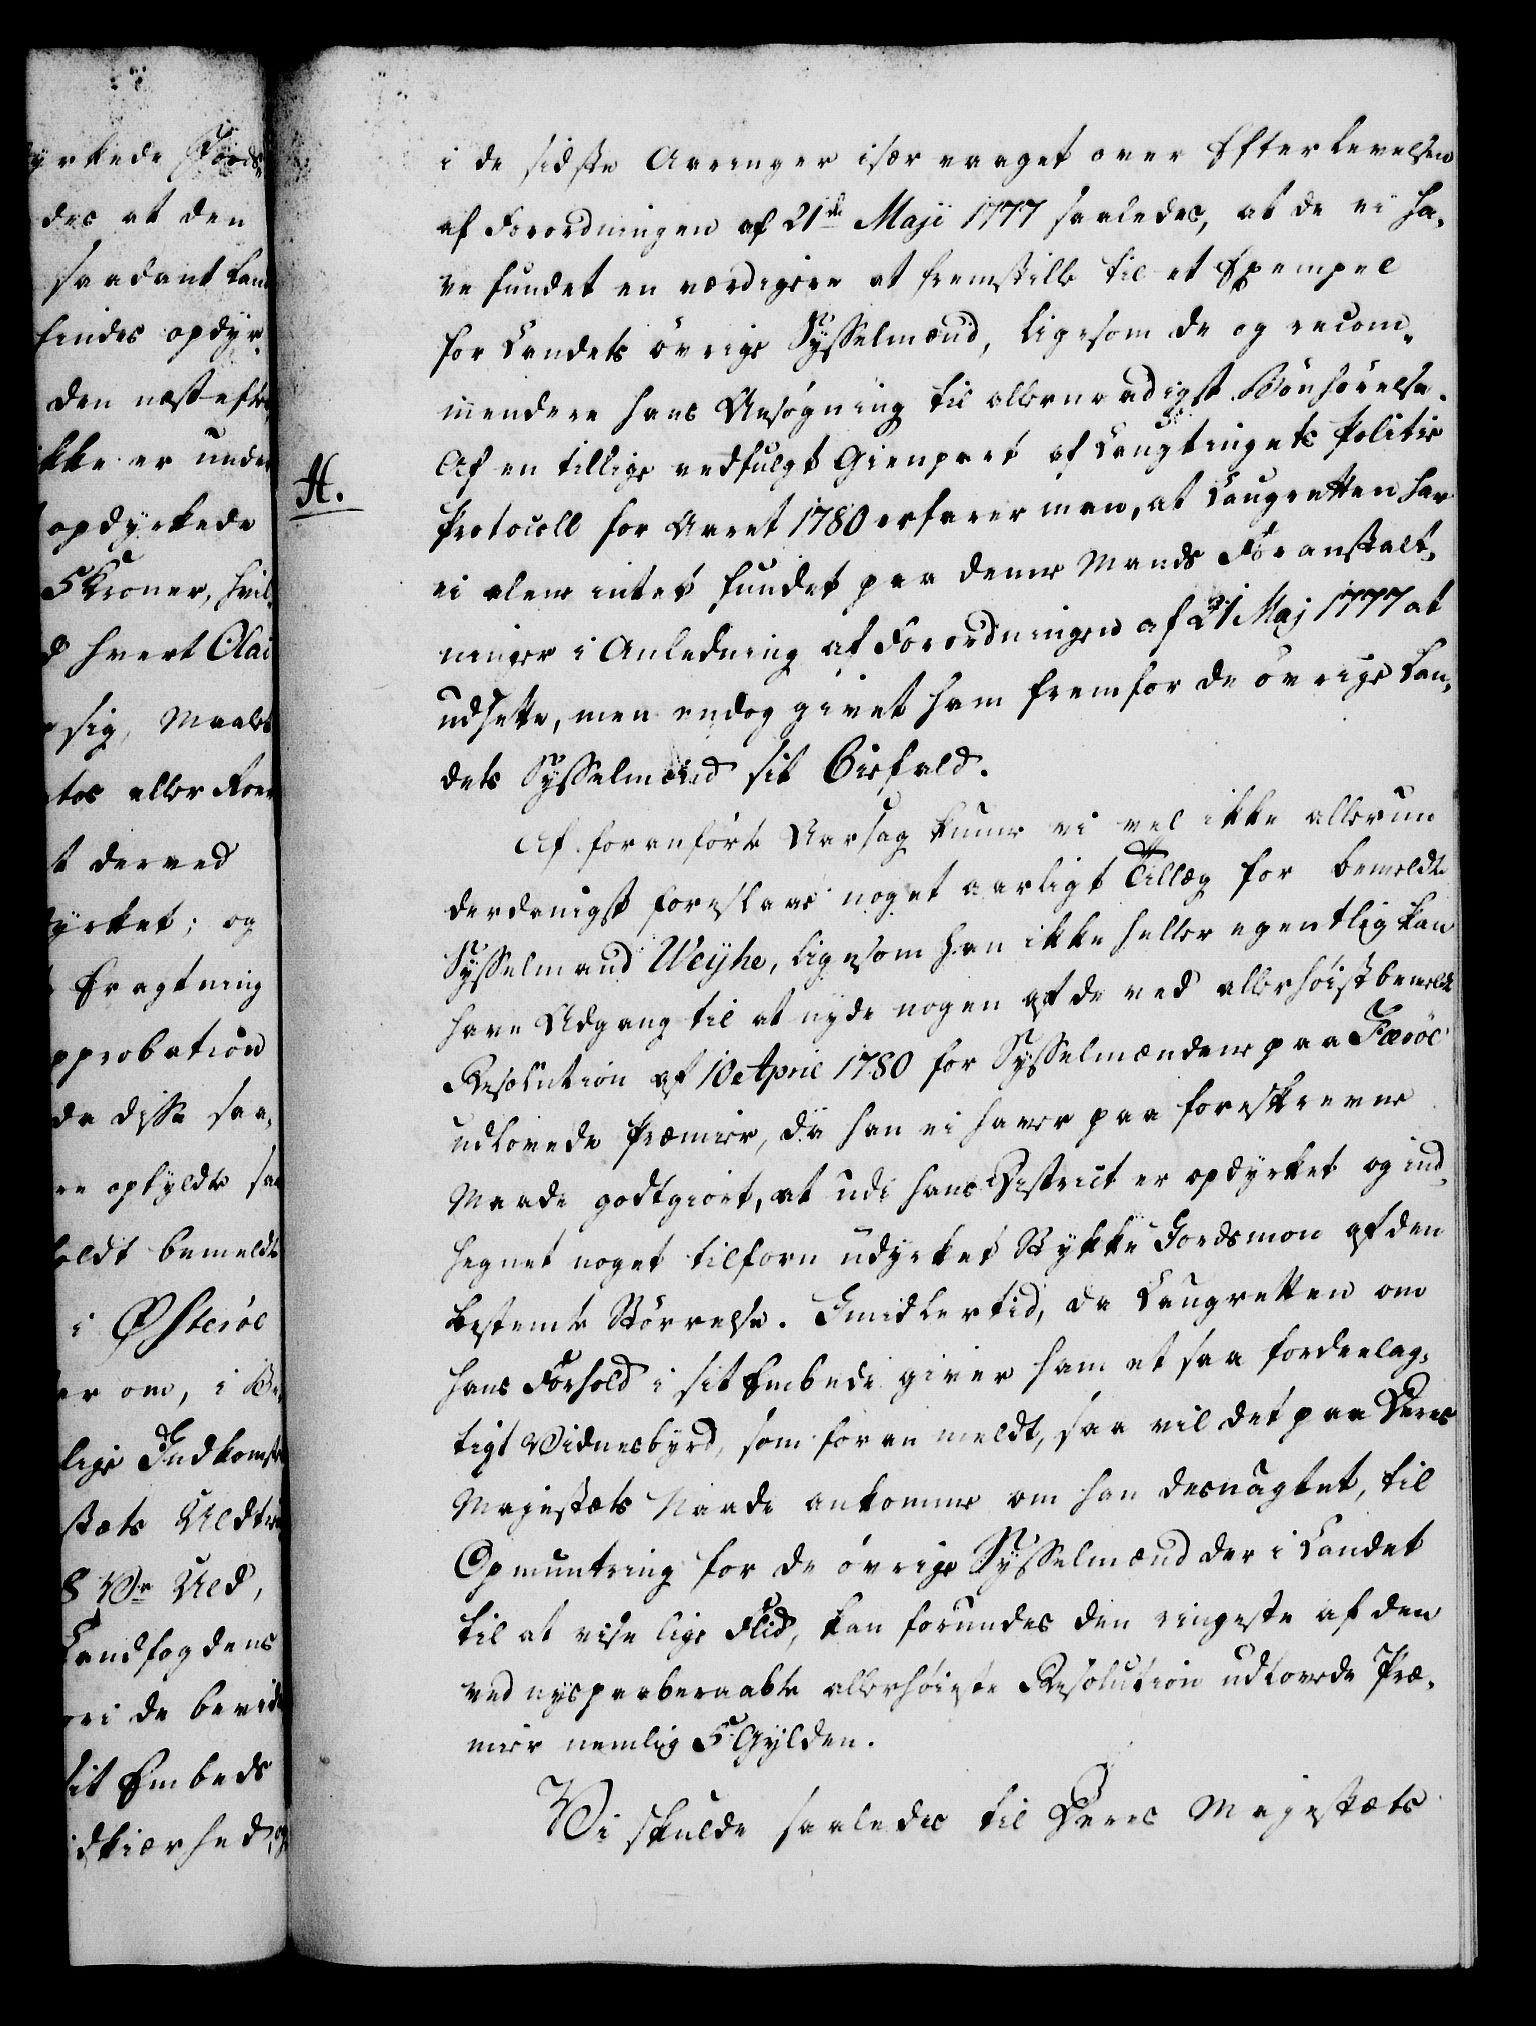 yrkede Jords,
des at den
saadant Lan
findes opdyr,
den næstefter
ikke er unde
opdyrkede
5 Kroner, hvil,
d hvert Olai
sig, Maalt
tes eller Roe
t derved
yrket; og
Fragtning
pprobation
da disse saa,
re opfyldte saa
oldt bemeldte
i Østeröe
er om, i Be,
lige Indkomst
stæts Uldt
8 Vr Uld,
Landfogdens
ori de bevid
sit Embeds
idkiærhed, og
i de sidste Aaringer især vaaget over Efterlevelsen
af Forordningen af 21de Maji 1777 saaledes, at de ei ha,
ve fundet en værdigere at fremstille til et Exempel
for Landets övrige Sysselmænd, ligesom de og recom,
mendere hans Ansøgning til allernaadigst Bönhörelse.
A.
Af en tillige vedfulgt Gienpart af Laugtingets Politie
Protocoll for Aaret 1780 erfarer man, at Laugretten har
ei alene intet fundet paa denne Mands Foranstalt,
ninger i Anledning af Forordningen af 21 Maj 1777 at
udsette, men endog givet ham fremfor de övrige Lan,
dets Sysselmænd sit Biefald.
Af foranförte Aarsag kunne vi vel ikke allerun
derdanigst foreslaae noget aarligt Tillæg for bemeldte
Sysselmand Weyhe, ligesom han ikke heller egentlig kan
have Adgang til at nyde nogen af de ved allerhöistbemeldte
Resolution af 10 April 1780 for Sysselmændene paa Færöe
udlovede Præmier, da han ei haver paa foreskrevne
Maade godtgiort, at udi hans District er opdyrket og ind,
hegnet noget tilforn udyrket Stykke Jordsmon af den
bestemte Störrelse. Imidlertid, da Laugretten om
hans Forhold i sit Embede giver ham et saa fordeelag,
tigt Vidnesbyrd, som foran meldt, saa vil det paa Deres
Majestæts Naade ankomme om han desuagtet, til
Opmuntring for de övrige Sysselmænd der i Landet
til at vise lige Flid, kan forundes den ringeste af den
ved nyspaaberaabte allerhöieste Resolution udlovede Præ,
mier nemlig 5 Gylden.
Vi skulde saaledes til Deres Majestæts